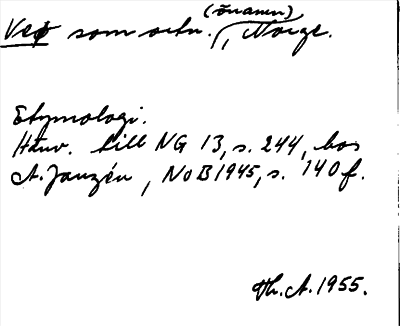 (önamn)
Veø som ortn., Norge.
Etymologi.
Hänv. till NG 13, s. 244, hos
A. Janzén, NoB 1945, s. 140 f.
Th. A. 1955.